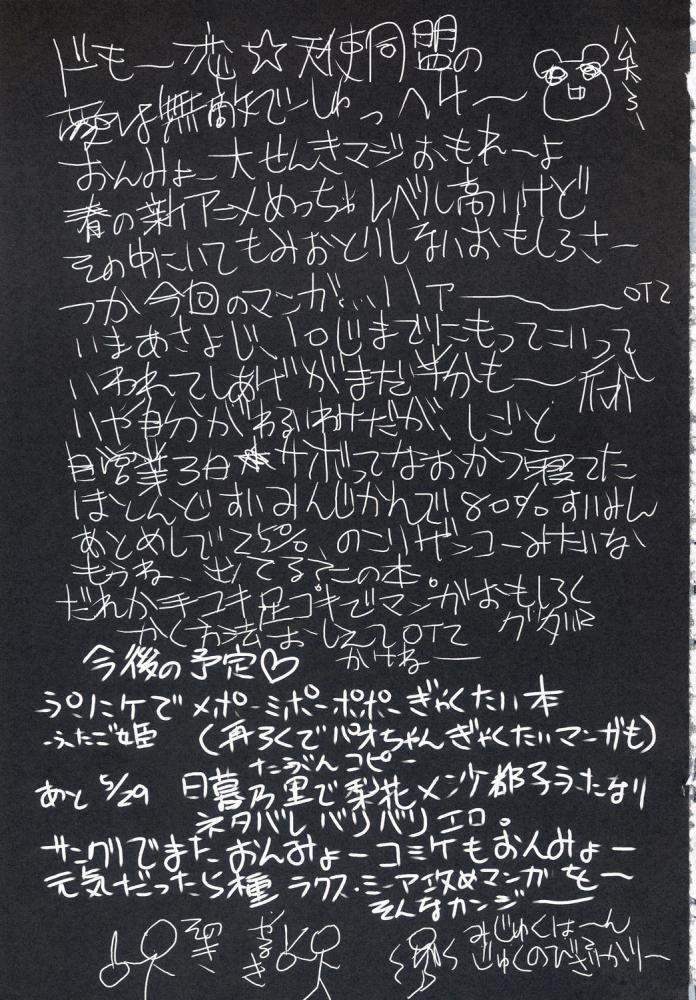 ドもー恋☆天使同盟の
愛は無敵でーしゅっ へけー
おんみょー大せんきマジおもれーよ
春の新アニメめっちゃレベル高いけど
その中にいてもみおとりしないおもしろさー
つか今回のマンガ…ハァーーー OTZ
いまあさ じ、10じまでにもってこいって
いわれてしあげがまだ半分も〜
いや自分がわるいわけだが、しごと
自営業3日 サボってなおかつ寝てた
ほとんどすいみんじかんで80%すいみん
あとめしで25% のこりザンコーみたいな
もうねー、出てる?この本。
だれか手コキ足コキでマンガおもしろく
かく方法おしえてOTZ
かけねー
今後の予定♡
ぷにケでメポーミポーポポーぎゃくたい本
ふたご姫 (再ろくでパオちゃんぎゃくたいマンガも)
たぶんコピー
あと 5/29 日暮乃里で梨花メンケ都子うたなり
ネタバレバリバリエロ。
サングリでまたおんみょーコミケもおんみょー
元気だったら種 ラクス・ミーア攻めマンガを〜
そんなカンジーー
やるき
みじゅくは〜ん